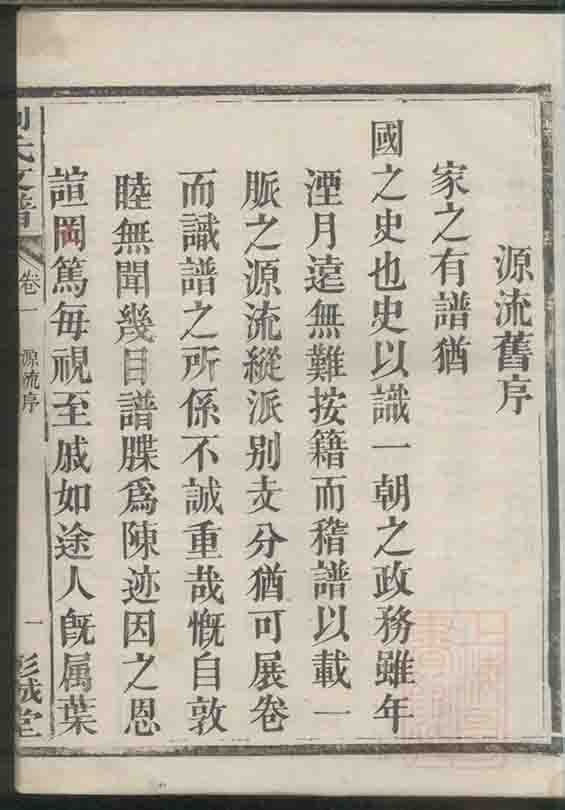 源流舊序
家之有譜猶
國之史也史以識一朝之政務雖年
湮月遠無難按籍而稽譜以載一
脈之源流縱派别支分猶可展卷
而識譜之所係不誠重哉慨自敦
睦無聞幾目譜牒爲陳迹因之恩
誼罔篤每視至戚如途人旣属葉
氏支譜
卷一
源流序
一
彭城堂